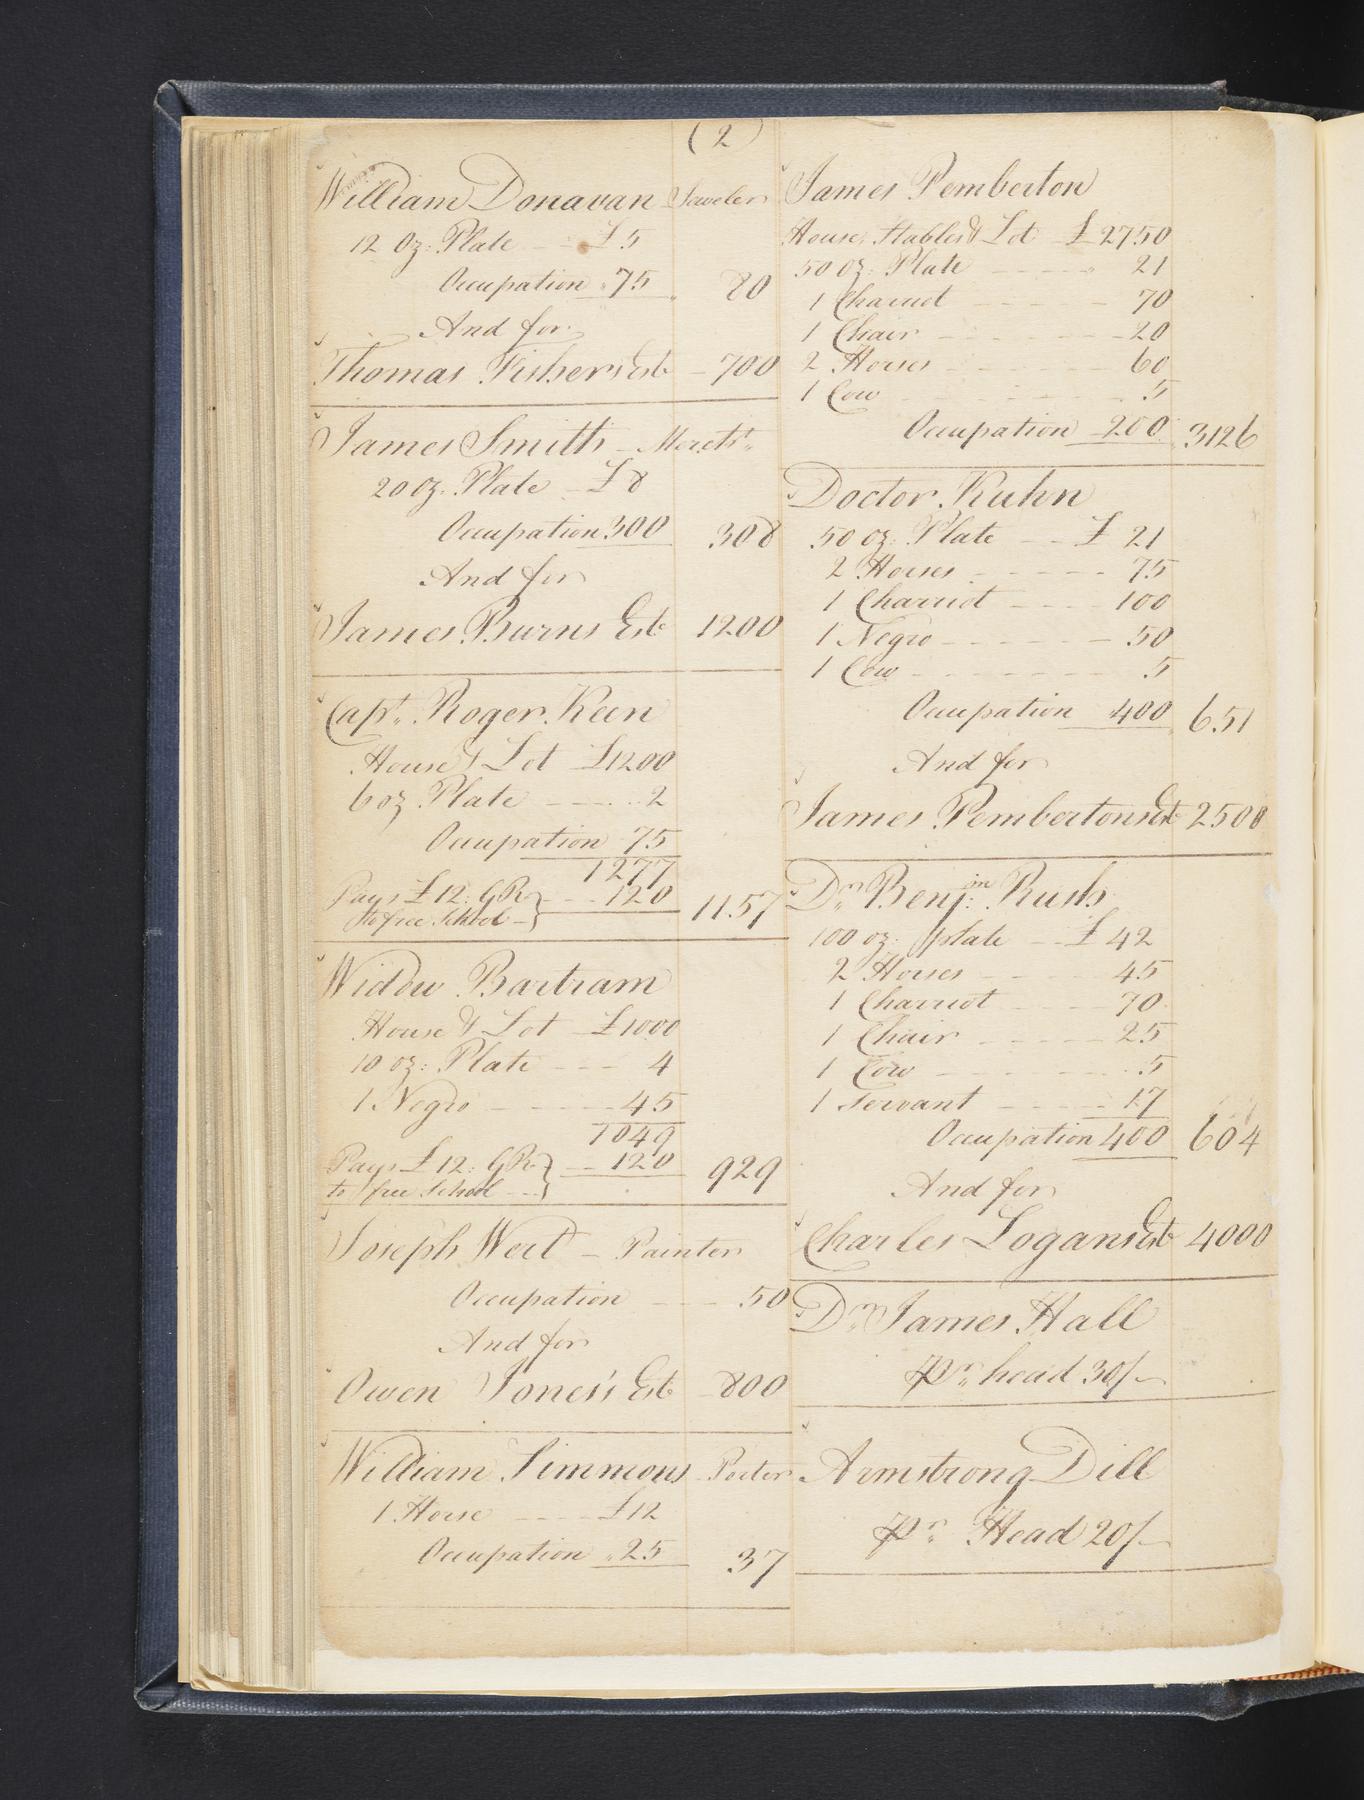 (2)
William Donavan Jeweler
12 Oz: Plate £5
Occupation 75 80
And for
Thomas Fishers Est 700
James Smith Marcht.
20 oz. Plate £8
Occupation 300 308
And for
James Burns Est 1200
Capt. Roger Keen
House & Lot £1200
6 oz Plate 2
Occupation 75
1277
Pays £12: GR 120 1157
to free School
Widow Bartram
House & Lot £1000
10 oz: Plate 4
1 Negro 45
1049
Pays £12: GR 120 929
to free School
Joseph Wert Painter
Occupation 50
And for
Owen Jones's Est 800
William Simmons Porter
1 Horse £12
Occupation 25 37
James Pemberton
House, Stables & Lot £2750
50 oz: Plate 21
1 Charriot 70
1 Chair 20
2 Horses 60
1 Cow 5
Occupation 200 3126
Doctor Kuhn
50 oz: Plate £21
2 Horses 75
1 Charriot 100
1 Negro 50
1 Cow 5
Occupation 400 651
And for
James Pembertons Est 2500
Dr. Benjin: Rush
100 oz: plate £42
2 Horses 45
1 Charriot 70
1 Chair 25
1 Cow 5
1 Servant 17
Occupation 400 604
And for
Charles Logans Est 4000
Dr. James Hall
Pr. head 30/-
Armstrong Dill
Pr. Head 20/-